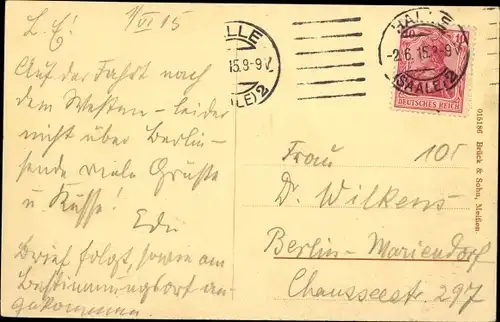 1/VI 15
L. E!
Auf der Fahrt nach
dem Westen - leider
nicht über Berlin -
sende viele Grüße
u. Küsse!
Edu
Brief folgt, sowie am
Bestimmungsort an-
gekommen.
HALLE
2.6.15.8-9V.
(SAALE)2
HALLE
-2.6.15.8-9V.
(SAALE)2
10
DEUTSCHES REICH
015186 Brück & Sohn, Meißen
Frau
Dr. Wilkens
Berlin-Mariendorf
Chausseestr 297